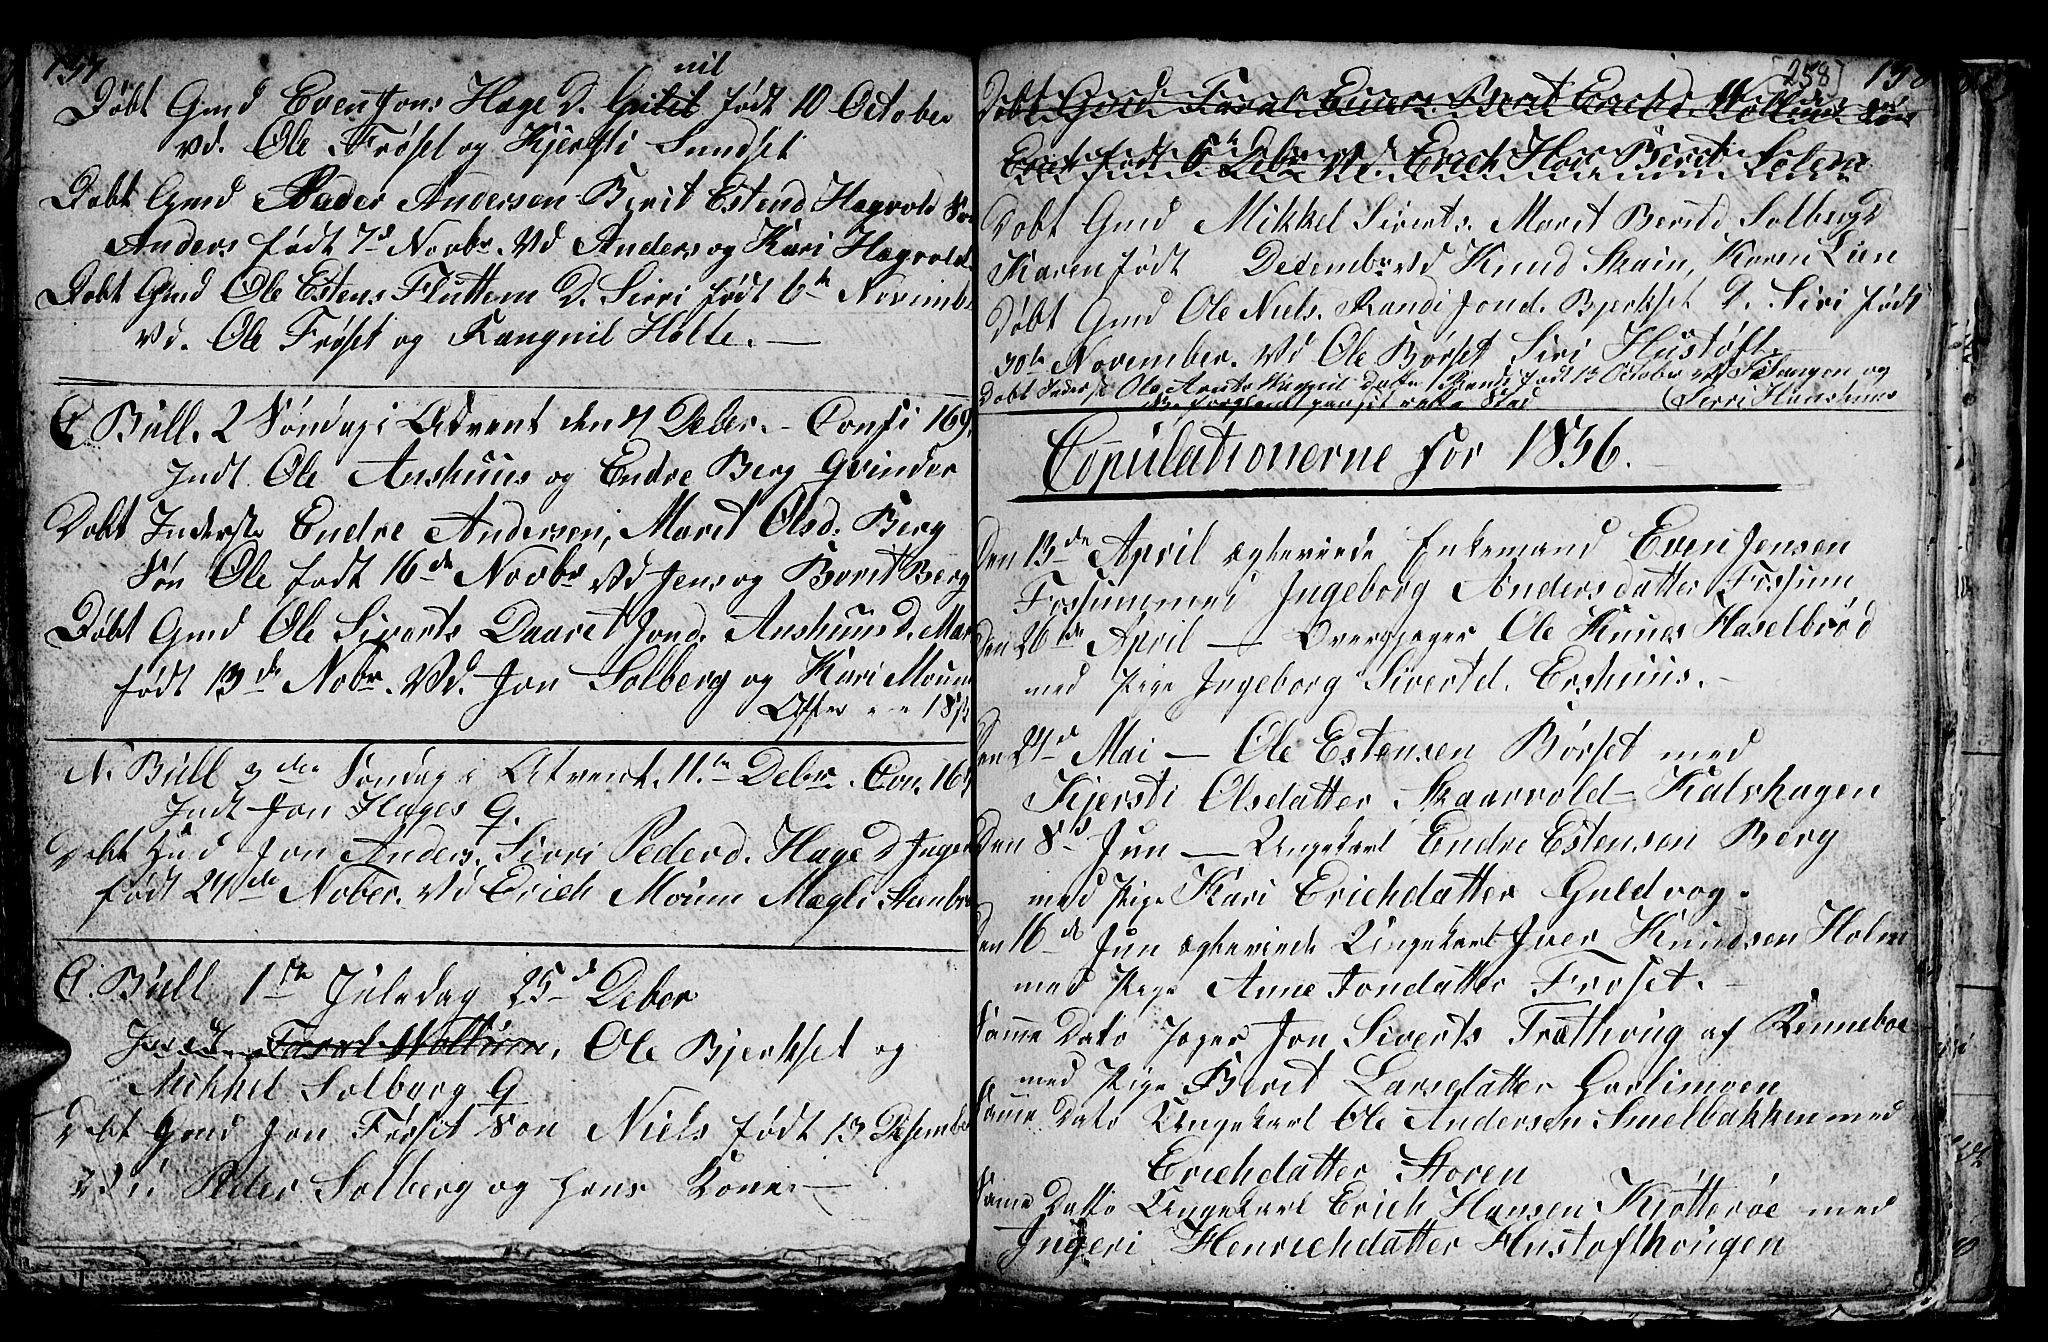 137
Døbt Gmd Even Jons Hage D. Gunil født 10 October
vd. Ole Frøset og Kjersti Sundset
Døbt Gmd Peder Andersen Berit Estend Hagvold Søn
Anders født 7d Novbr. Vd Anders og Kari Hagvold
Døbt Gmd Ole Estens Fluttem D. Sirri født 6te Novimb
vd. Ole Frøset og Rangnil Holte.
C. Bull. 2 Søndag i Advent den 4 Deber. - Confi 169
Indt. Ole Aushuus og Endre Berg Qvinder
Døbt Inderste Endre Andersen, Marit Olsd. Berg
Søn Ole født 16de Novbr Vd Jens og Berit Berg
Døbt Gmd Ole Siverts Daaret Jond. Aushuus D. Mar
født 13de Nobr. Vd. Jon Solberg og Kari Moum
N. Bull 3die Søndag i Advent. 11te Debr. Con. 16
Indt Jon Hages Q.
Døbt Jon Anders. Sirri Pederd. Hage D Inge
født 24de Nober. vd Erich Moum Magli Steenbr
C. Bull 1te Juledag 25d Deber
Indt Ole Bjerkset og
Mikkel Solberg Q
Døbt Gmd Jon Frøset Søn Niels født 13 Desember
Vd: Peder Solberg og hans Kone.
[258] 138
Døbt Gmd Berit Erichd
Erich født 6te Debr Vd. Erich Hov Berit Solem
Døbt Gmd Mikkel Siverts. Marit Berntd Solberg D
Karen født Decembr vd Knud Skain, Karen Lien
Døbt Gmd Ole Niels. Randi Jond. Bjerkset D. Siri født
30te November. Vd Ole Børset Siri Hustoft
Døbt Inderst Ole Arnts. Datter Randi født 13 October vd
Sirri Haashuus
Copulationerne for 1836.
Den 13de April Egteviede Enkemand Even Jensen
Fossum med Ingeborg Andersdatter Fossum
Den 26de April — Ole Knuds Haselbrød
med Pige Ingeborg Siverld. Ershuus.
Den 24d Mai — Ole Estensen Børset med
Kjersti Olsdatter Skaarvold Kalshagen
Den 8d Jun — Ungekarl Endre Estensen Berg
med Pige Kari Erichdatter Guldvog.
Den 16de Jun Egteviede Ungekarl Iver Knudsen Holm
med Pige Anne Jondatter Frøset.
Samme Dato Jæger Jon Siverts Træthoug af Renneboe
med Pige Berit Larsdatter Gorlimoen
Samme Dato Ungekarl Ole Andersen Smelbakken med
Erichdatter Storen
Samme Dato Ungekarl Erich Hansen Kjøtterøe med
Ingeri Henrichdatter Hustofthougen